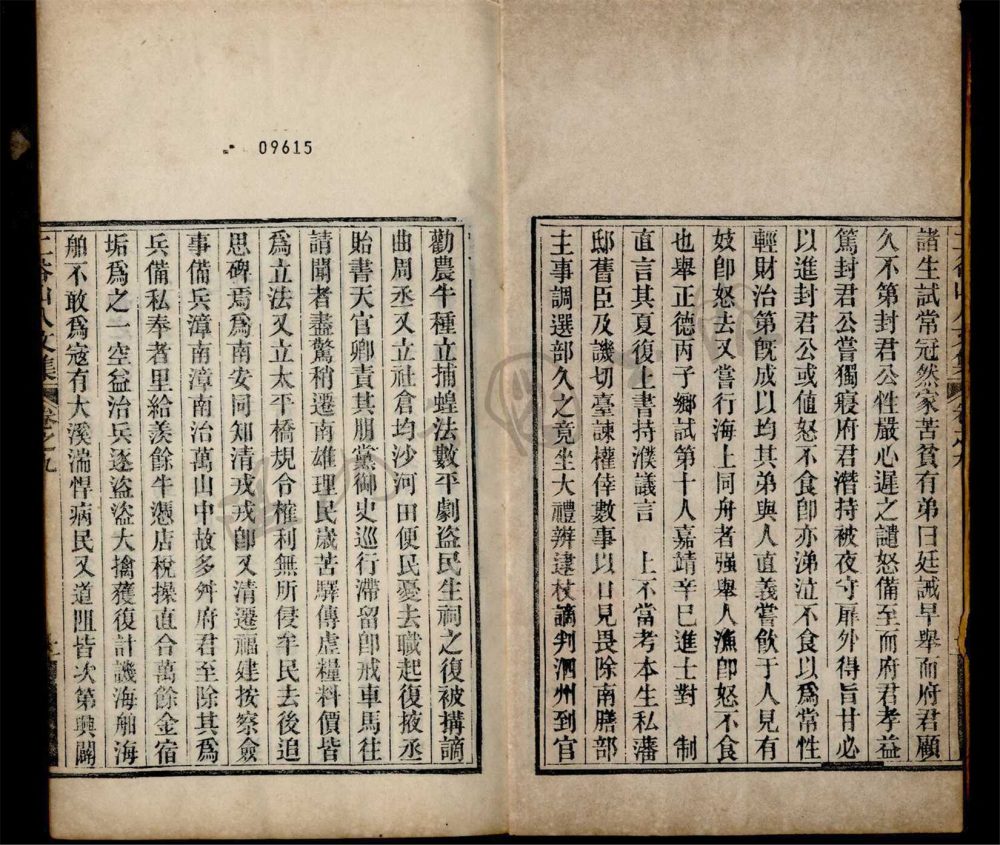 諸生試常冠然家苦貧有弟曰廷誡早舉而府君顧
久不第封君公性嚴心遲之譴怒備至而府君孝益
篤封君公嘗獨寢府君潛持被夜守扉外得旨甘必
以進封君公或值怒不食卽亦涕泣不食以爲常性
輕財治第旣成以均其弟與人直義嘗飮于人見有
妓卽怒去又嘗行海上同舟者强舉人漁卽怒不食
也舉正德丙子鄉試第十人嘉靖辛巳進士對 制
直言其夏復上書持濮議言 上不當考本生私藩
邸舊臣及譏切臺諫權倖數事以日見畏除南膳部
主事調選部久之竟坐大禮辨逮杖謫判泗州到官
09615
勸農牛種立捕蝗法數平劇盜民生祠之復被搆謫
曲周丞又立社倉均沙河田便民憂去職起復掖丞
貽書天官卿責其朋黨御史巡行滯留卽戒車馬往
請聞者盡驚稍遷南雄理民歲苦驛傳虛糧料價皆
爲立法又立太平橋規令榷利無所侵牟民去後追
思碑焉爲南安同知清戎戎卽又清遷福建按察僉
事備兵漳南漳南治萬山中故多舛府君至除其爲
兵備私奉者里給羨餘牛憑店稅操直合萬餘金宿
垢爲之一空益治兵逐盜盜大擒獲復計譏海舶海
舶不敢爲寇有大溪湍悍病民又道阻皆次第興闢
卷之九